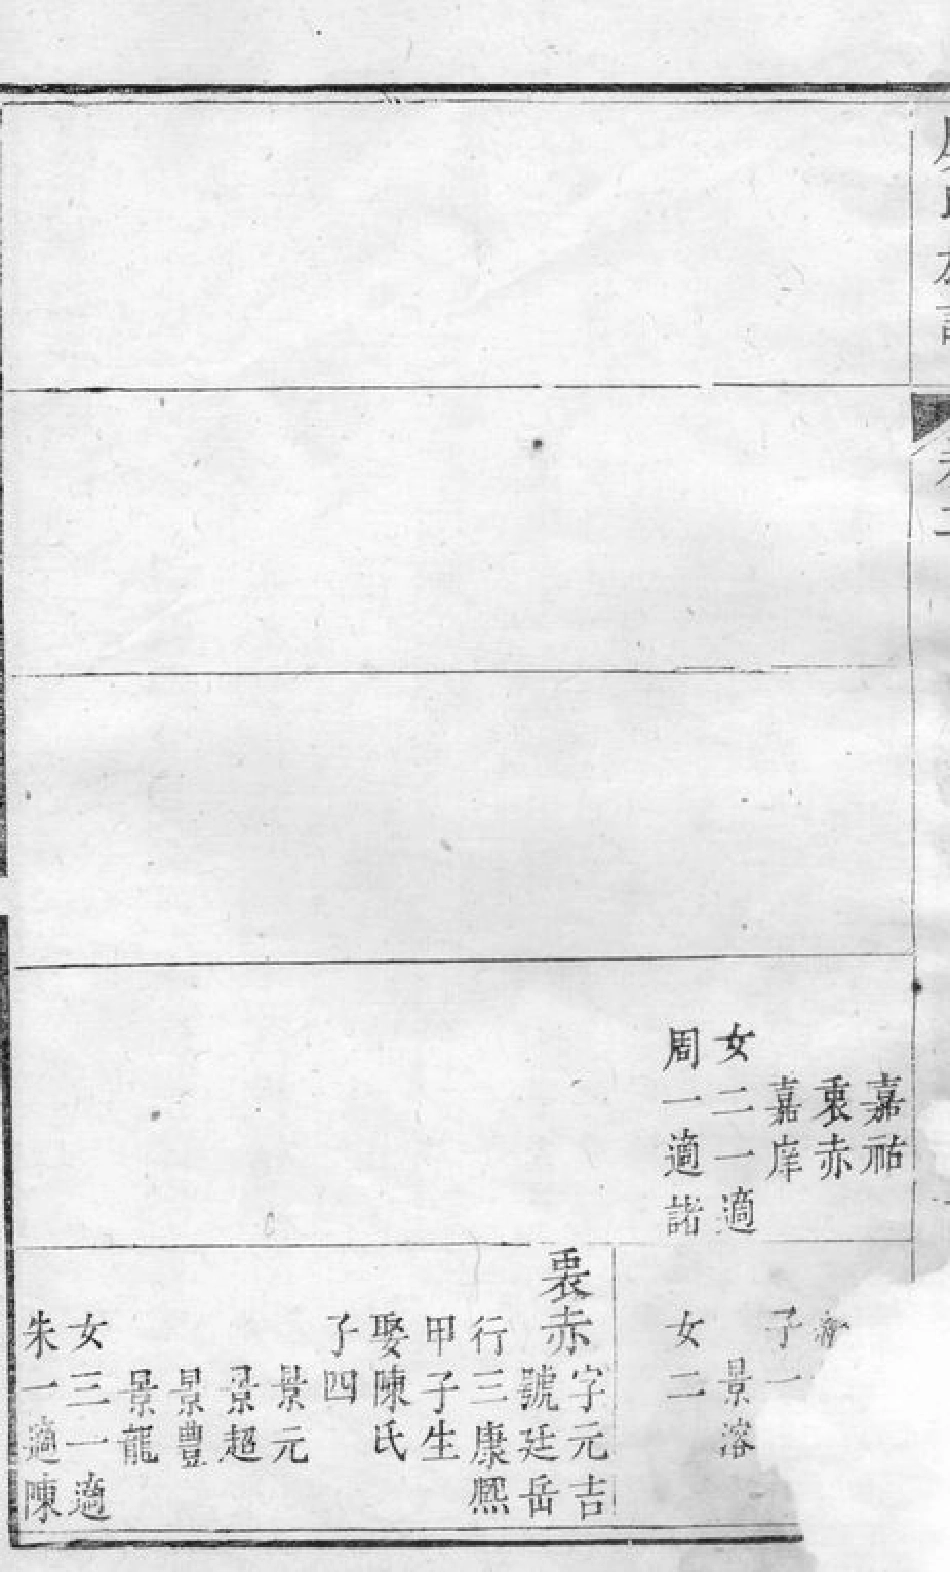 嘉祐
衷赤
嘉庠
女二一適
周一適諧
子一
景溶
女二
衷赤
字元吉
號廷岳
行三康熙
甲子生
娶陳氏
子四
景元
景超
景豐
景龍
女三一適
朱一適陳